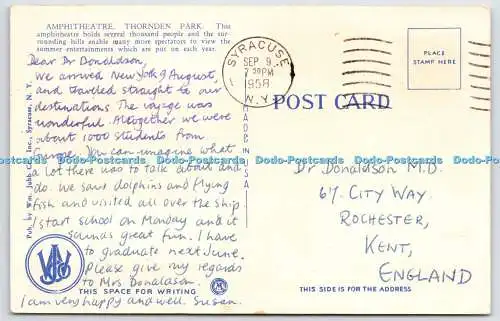 AMPHITHEATRE, THORNDEN PARK. This
amphitheatre holds several thousand people and the sur-
rounding hills enable many more spectators to view the
summer entertainments which are put on each year.
Dear Dr Donaldson,
We arrived New York 9 August,
and traveled straight to our
destinations. The voyage was
wonderful. Altogether we were
about 1000 students from
You can imagine what
a lot there was to talk about and
do. We saw dolphins and flying
fish and visited all over the ship.
I start school on Monday and it
sounds great fun. I have
to graduate next June.
Please give my regards
to Mrs Donaldson.
I am very happy and well. Susan.
THIS SPACE FOR WRITING
Pub. by Wm. Jubb Co., Inc., Syracuse, N. Y.
SYRACUSE
SEP 9
7 30 PM
1958
N.Y.
MADE IN U.S.A.
POST CARD
PLACE
STAMP HERE
Dr Donaldson M.D.
67. CITY WAY.
ROCHESTER,
KENT,
ENGLAND
THIS SIDE IS FOR THE ADDRESS
Dodo-Postcards Dodo-Postcards Dodo-Postcards Dodo-Postcards Dodo-Postcards Dodo-Postcards